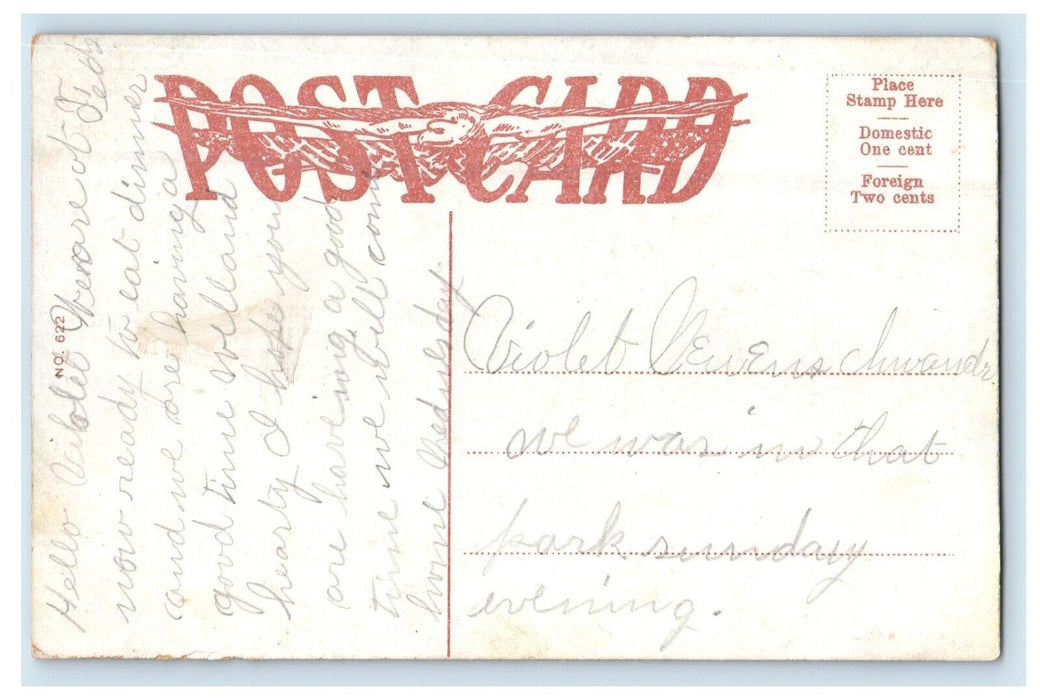 POST CARD
Place
Stamp Here
Domestic
One cent
Foreign
Two cents
NO. 622
Hello Violet We are at
now ready to eat dinner
and we are having a
good time
hearty I hope you
are haveing a good
time we will come
home Wednesday.
Violet
we was in that
park sunday
evening.